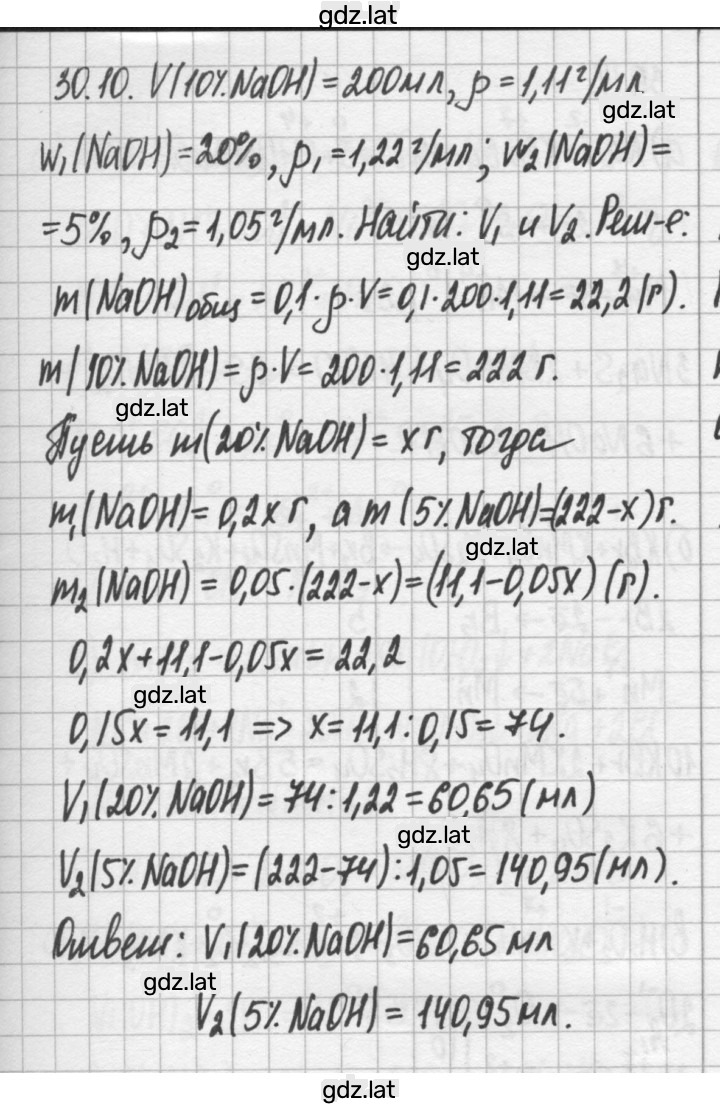 gdz.lat
30.10. V(10% NaOH) = 200 мл, ρ = 1,11 г/мл
gdz.lat
w₁(NaOH) = 20%, ρ₁ = 1,22 г/мл; w₂(NaOH) =
= 5%, ρ₂ = 1,05 г/мл. Найти: V₁ и V₂. Реш-е:
gdz.lat
m(NaOH)общ = 0,1·ρ·V = 0,1·200·1,11 = 22,2 (г).
m(10% NaOH) = ρ·V = 200·1,11 = 222 г.
gdz.lat
Пусть m(20% NaOH) = x г, тогда
m₁(NaOH) = 0,2x г, а m(5% NaOH) = (222-x) г.
gdz.lat
m₂(NaOH) = 0,05·(222-x) = (11,1-0,05x) (г).
0,2x + 11,1 - 0,05x = 22,2
gdz.lat
0,15x = 11,1 => x = 11,1 : 0,15 = 74.
V₁(20% NaOH) = 74 : 1,22 = 60,65 (мл)
gdz.lat
V₂(5% NaOH) = (222-74) : 1,05 = 140,95 (мл).
Ответ: V₁(20% NaOH) = 60,65 мл
gdz.lat
V₂(5% NaOH) = 140,95 мл.
gdz.lat